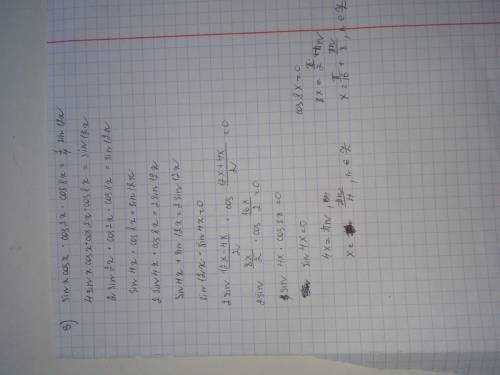 3) sin x cos x · cos 2x · cos 8x = 1/4 sin 12x
4 sin x cos x · cos 2x · cos 8x = sin 12x
2 sin 2x · cos 2x · cos 8x = sin 12x
sin 4x · cos 8x = sin 12x
2 sin 4x · cos 8x = 2 sin 12x
sin 4x + sin 12x = 2 sin 12x
sin 12x - sin 4x = 0
2 sin (12x - 4x)/2 · cos (12x + 4x)/2 = 0
2 sin 8x/2 · cos 16x/2 = 0
sin 4x · cos 8x = 0
sin 4x = 0 cos 8x = 0
4x = πn, 8x = π/2 + πn
x = πn/4, n ∈ Z x = π/16 + πn/8, n ∈ Z